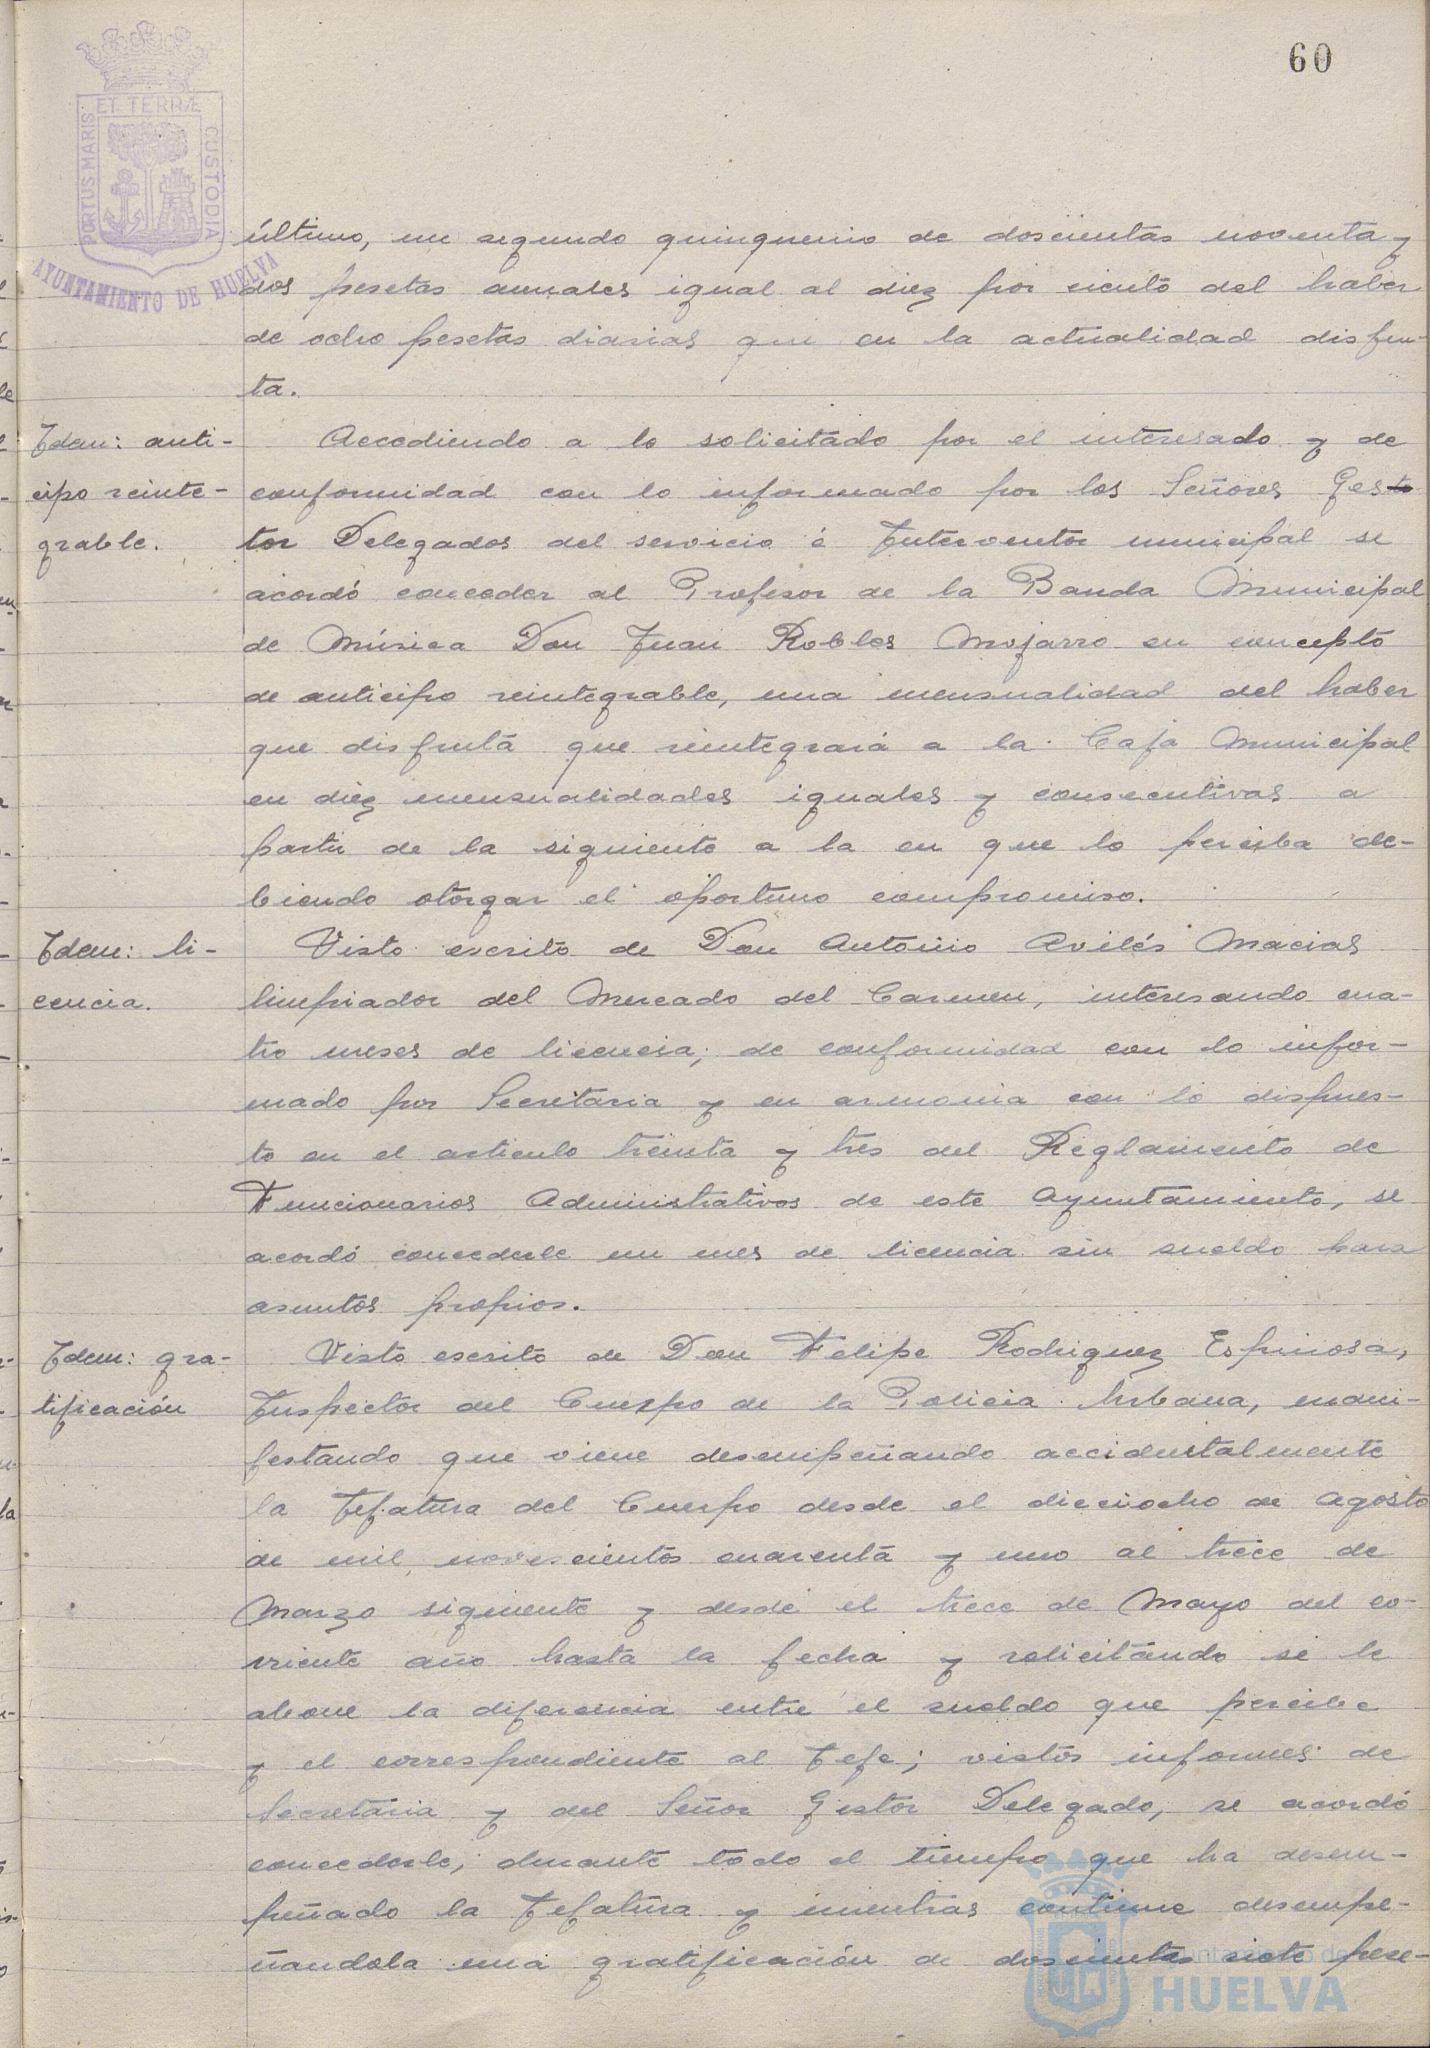 60
ET TERRÆ
PORTUS MARIS
CUSTODIA
AYUNTAMIENTO DE HUELVA
último, un segundo quinquenio de doscientas noventa y
dos pesetas anuales igual al diez por ciento del haber
de ocho pesetas diarias que en la actualidad disfru-
ta.
Idem: anti-
cipo reinte-
grable.
Accediendo a lo solicitado por el interesado y de
conformidad con lo informado por los Señores Gesto
tor Delegados del servicio é Interventor municipal se
acordó conceder al Profesor de la Banda Municipal
de Música Don Juan Robles Mojarro en concepto
de anticipo reintegrable, una mensualidad del haber
que disfruta que reintegrará a la Caja Municipal
en diez mensualidades iguales y consecutivas a
partir de la siguiente a la en que lo perciba de-
biendo otorgar el oportuno compromiso.
Idem: li-
cencia.
Visto escrito de Don Antonio Avilés Macias
limpiador del Mercado del Carmen, interesando cua-
tro meses de licencia; de conformidad con lo infor-
mado por Secretaria y en armonia con lo dispues-
to en el articulo treinta y tres del Reglamento de
Funcionarios Administrativos de este Ayuntamiento, se
acordó concederle un mes de licencia sin sueldo para
asuntos propios.
Idem: gra-
tificación
Visto escrito de Don Felipe Rodriguez Espinosa,
Inspector del Cuerpo de la Policia Urbana, mani-
festando que viene desempeñando accidentalmente
la Jefatura del Cuerpo desde el dieciocho de Agosto
de mil novecientos cuarenta y uno al trece de
Marzo siguiente y desde el trece de Mayo del co-
rriente año hasta la fecha y solicitando se le
abone la diferencia entre el sueldo que percibe
y el correspondiente al Jefe; vistos informes de
Secretaria y del Señor Gestor Delegado, se acordó
concederle, durante todo el tiempo que ha desem-
peñado la Jefatura y mientras continue desempe-
ñandola una gratificación de doscientas siete pese-
Ayuntamiento de
HUELVA